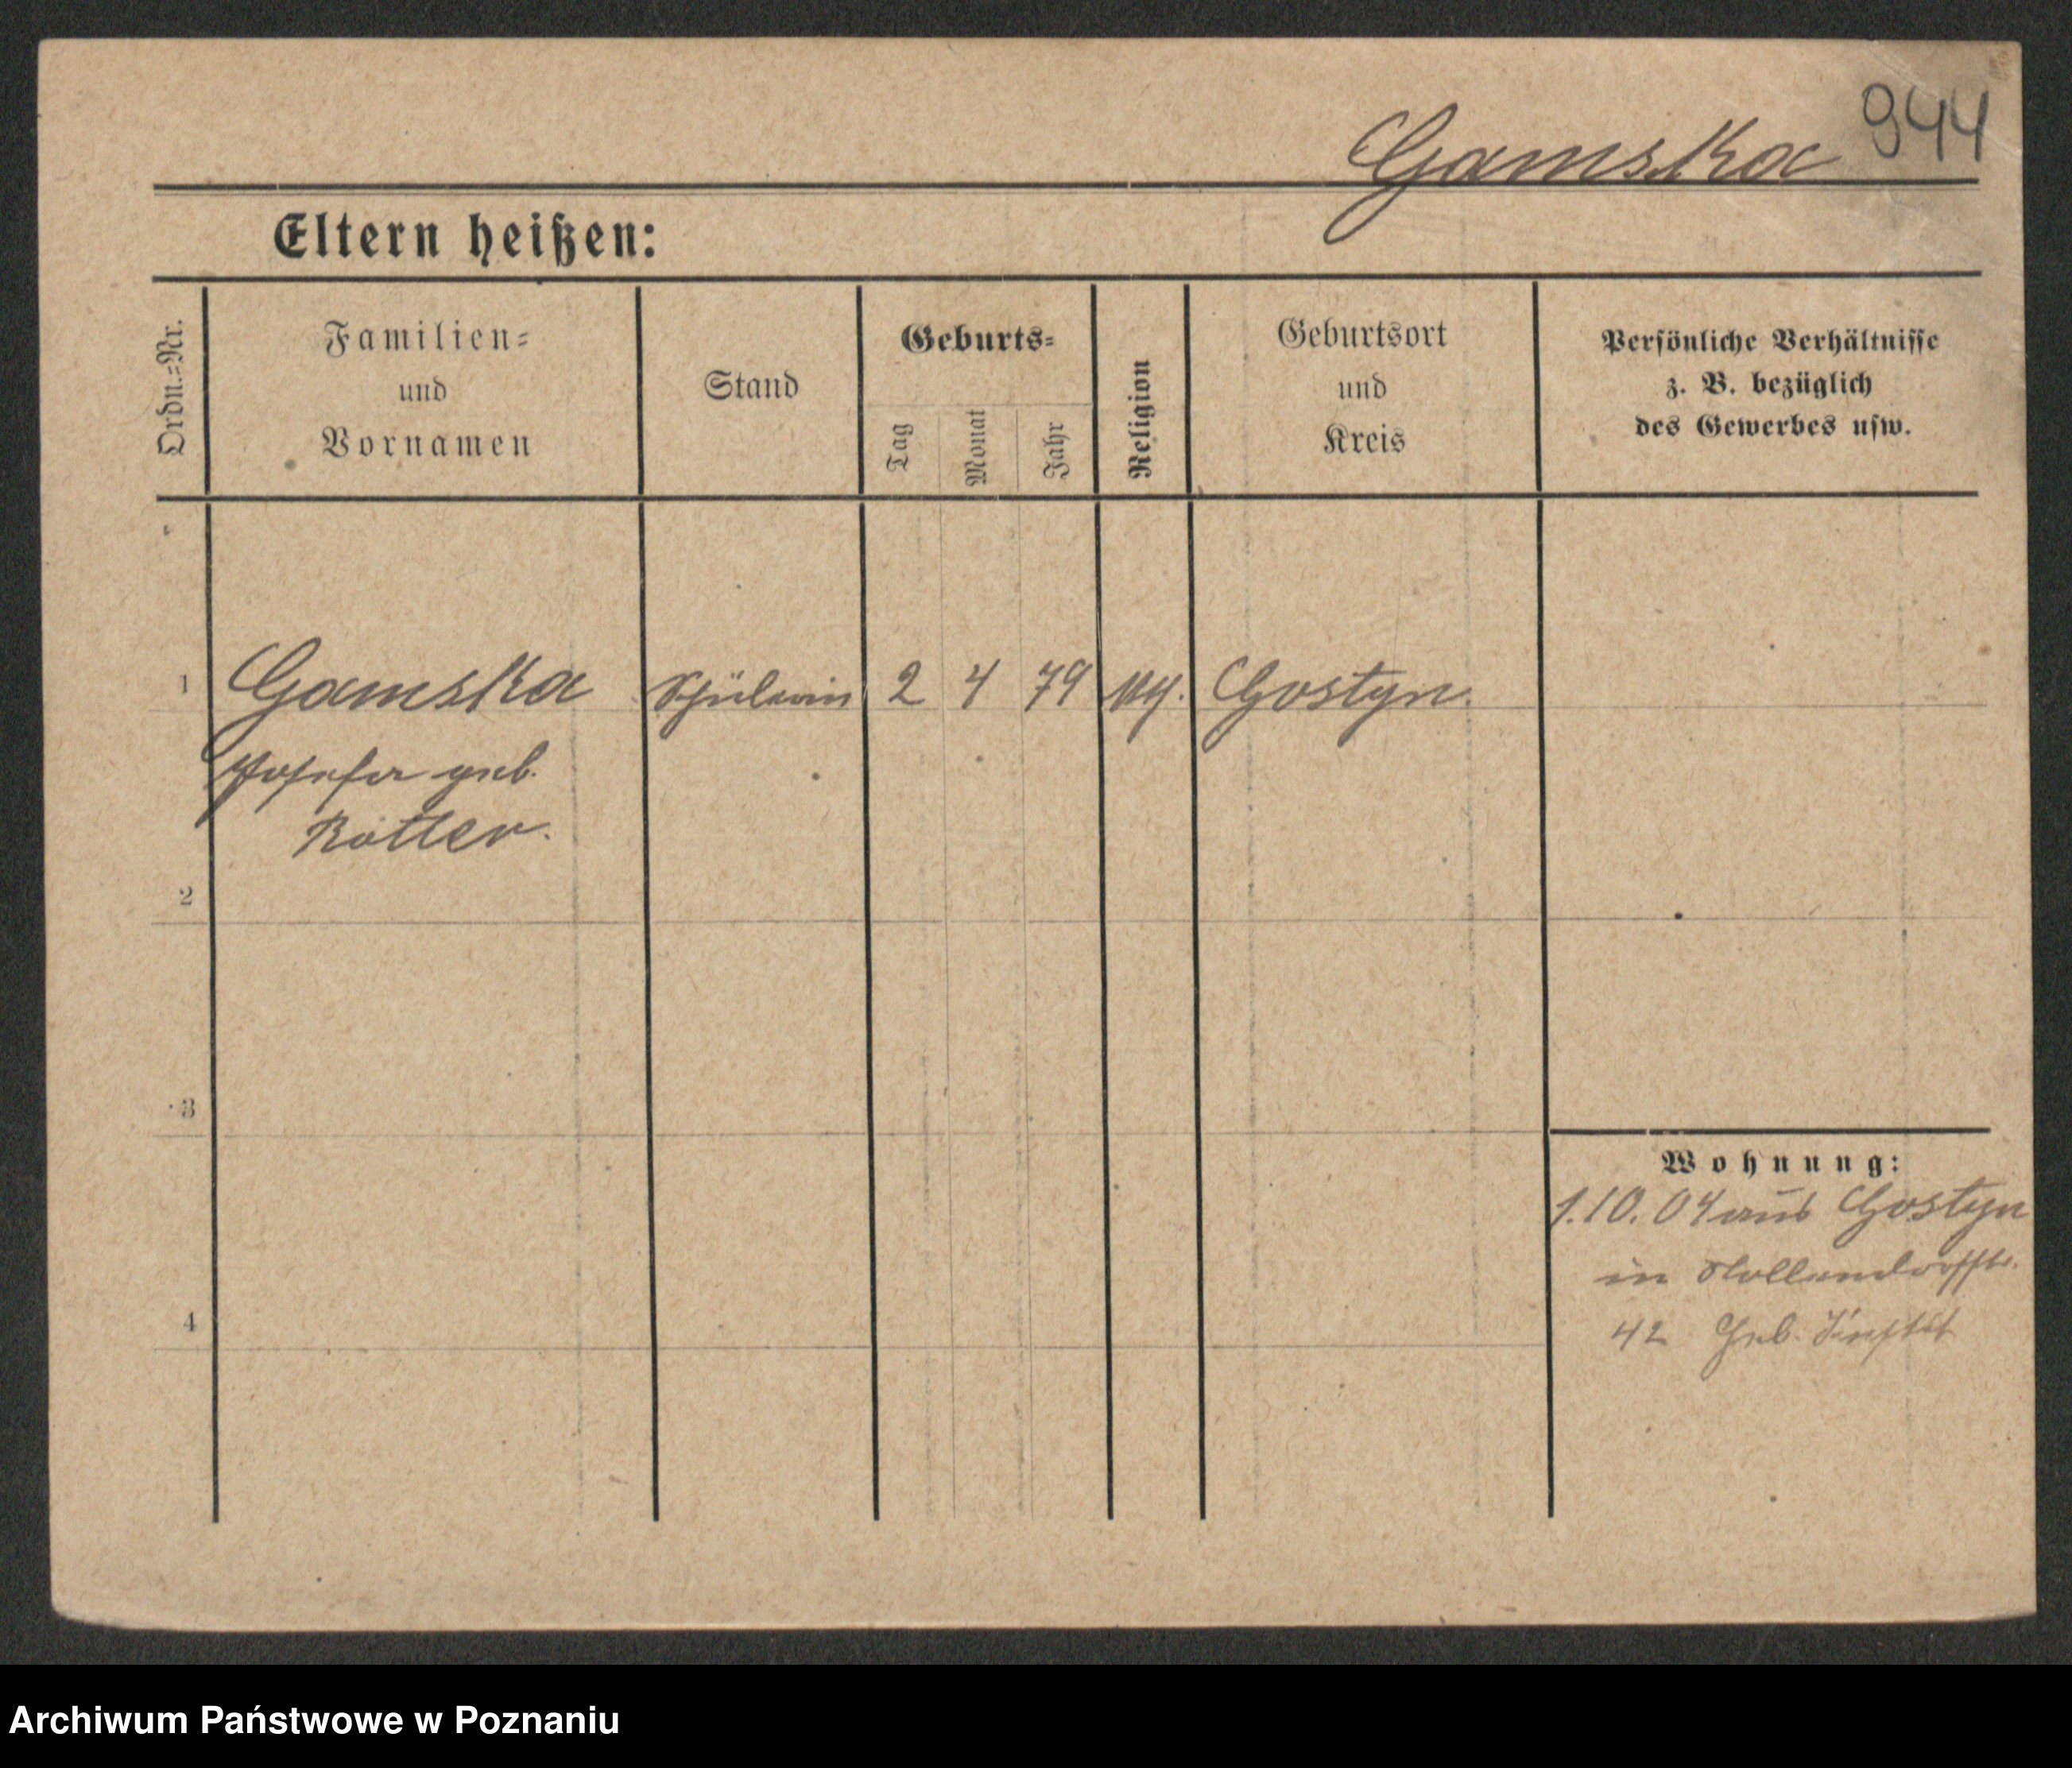 944
Gamska
Eltern heißen:
Ordn.=Nr.
Familien=
und
Vornamen
Stand
Geburts=
Tag
Monat
Jahr
Religion
Geburtsort
und
Kreis
Persönliche Verhältnisse
z. B. bezüglich
des Gewerbes usw.
1 Gamska Schülerin 2 4 79 Gostyn.
Josefa geb.
Rotter.
2
3
4
Wohnung:
1.10.04 aus Gostyn
in
42 Geb.
Archiwum Państwowe w Poznaniu